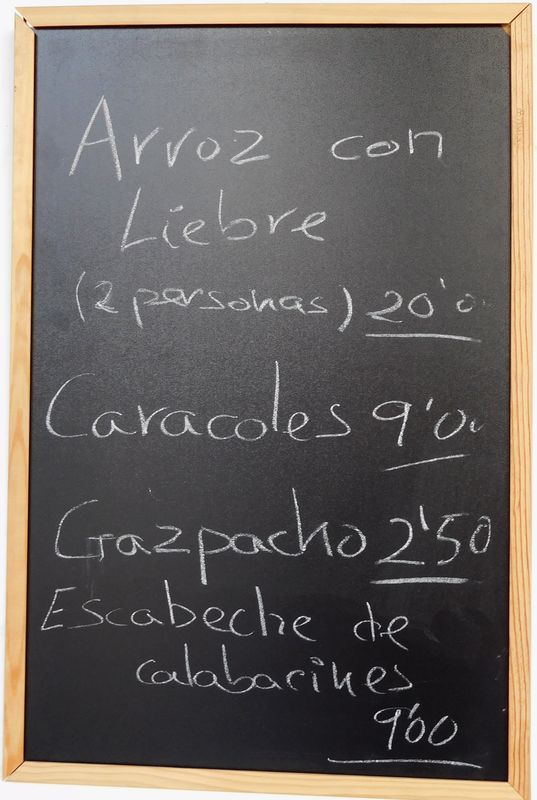 Arroz con
Liebre
(2 personas) 20'00
Caracoles 9'00
Gazpacho 2'50
Escabeche de
calabacines
9'00